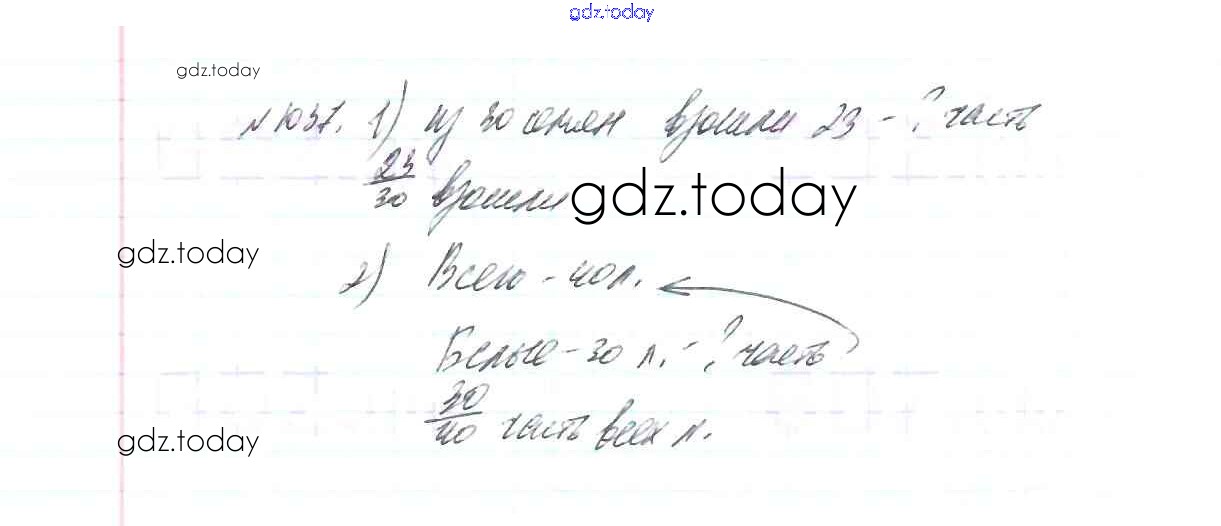 gdz.today
gdz.today
№1037. 1) из 30 семян взошли 23 - ? часть
23/30 взошли gdz.today
gdz.today
2) Всего - 40 л.
Белые - 30 л. - ? часть
30/40 часть всех л.
gdz.today